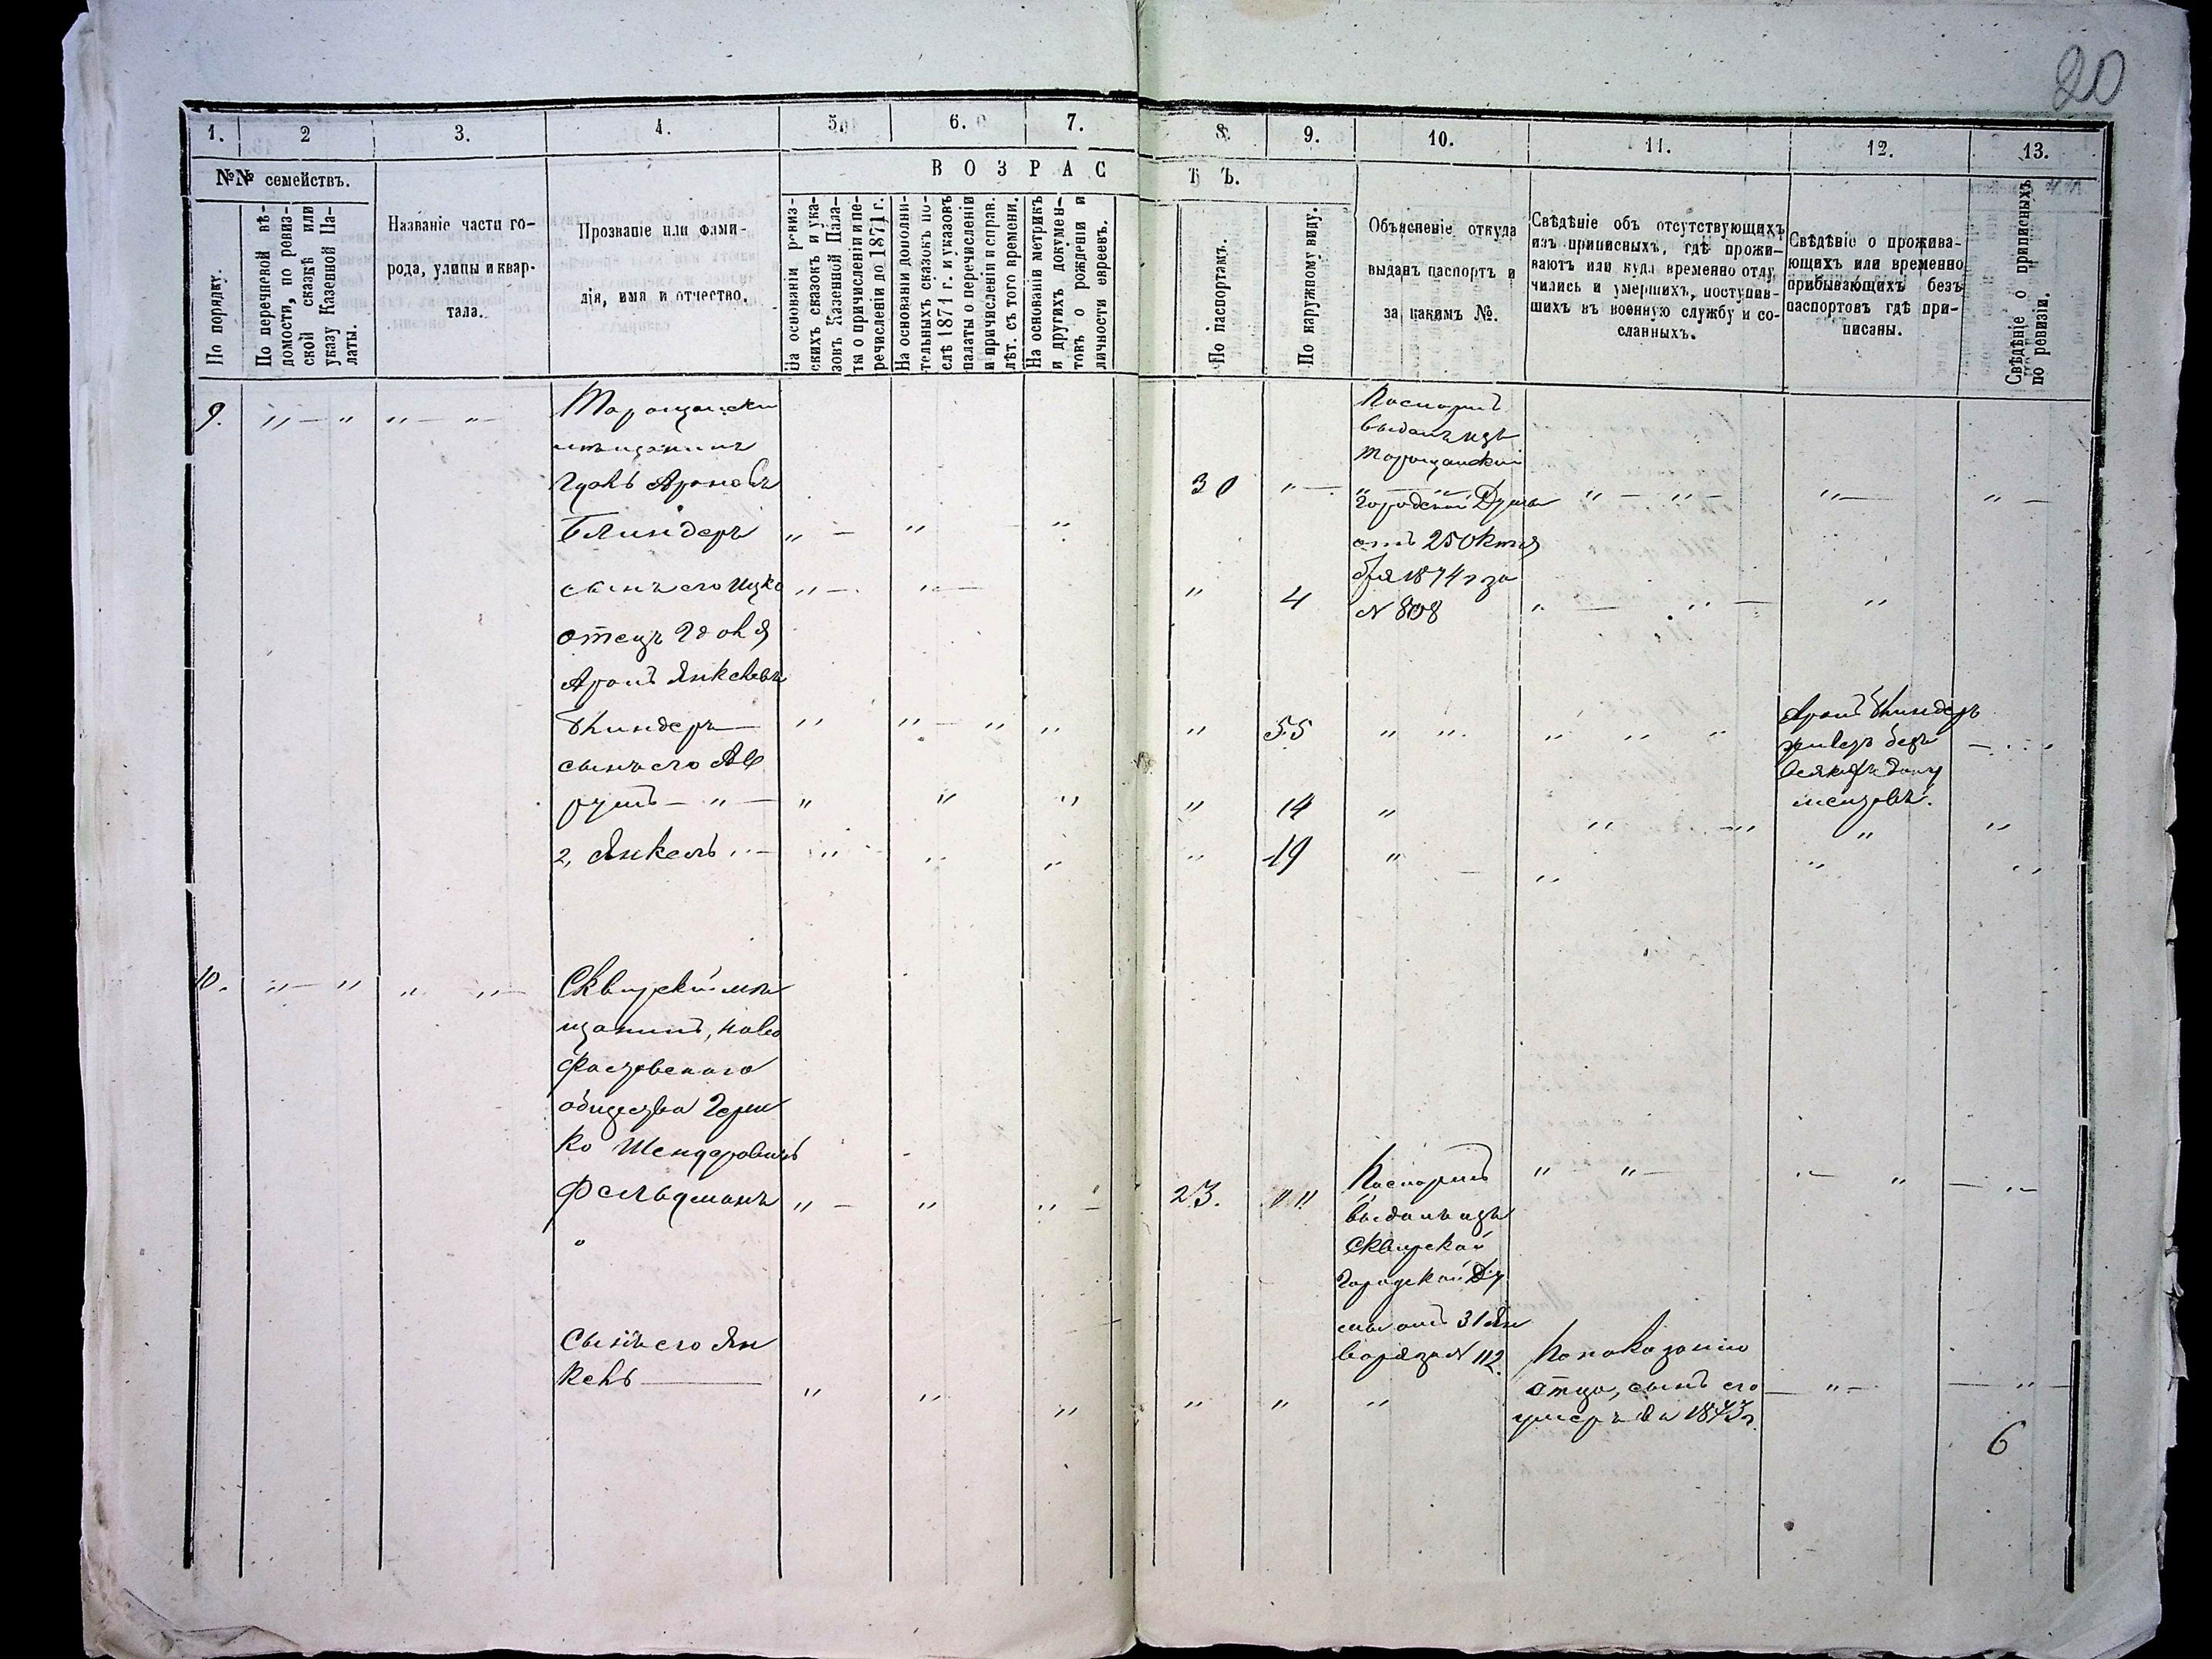 20
1. 2 3. 4. 5. 6. 7. 8. 9. 10. 11. 12. 13.
№№ семействъ.
ВОЗРАСТЪ.
По порядку.
По перечневой вѣ-
домости, по ревиз-
ской сказкѣ или
указу Казенной Па-
латы.
Названіе части го-
рода, улицы и квар-
тала.
Прозваніе или фами-
лія, имя и отчество.
На основаніи ревиз-
скихъ сказокъ и ука-
зовъ Казенной Пала-
ты о причисленіи и пе-
речисленіи до 1871 г.
На основаніи дополни-
тельныхъ сказокъ по-
слѣ 1871 г. и указовъ
палаты о перечисленіи
и причисленіи и справ.
лѣт. съ того времени.
На основаніи метрикъ
и другихъ докумен-
товъ о рожденіи и
личности евреевъ.
По паспортамъ.
По наружному виду.
Объясненіе откуда
выданъ паспортъ и
за какимъ №.
Свѣдѣніе объ отсутствующихъ
изъ приписныхъ, гдѣ прожи-
ваютъ или куда временно отлу-
чились и умершихъ, поступив-
шихъ въ военную службу и со-
сланныхъ.
Свѣдѣніе о прожива-
ющихъ или временно
прибывающихъ безъ
паспортовъ гдѣ при-
писаны.
Свѣдѣніе о приписныхъ
по ревизіи.
9.
Таращански
мѣщанинъ
Ароновъ
Блиндеръ
сынъ его Ицко
отецъ
Аронъ Янкелевъ
Блиндеръ
сынъ его Ав
румъ
2, Янкель
30
4
55
14
19
Паспортъ
выданъ изъ
Таращанской
Городской Думы
отъ 25 Октя
бря 1874 г за
№ 808
Аронъ Блиндеръ
живетъ безъ
всякихъ доку
ментовъ.
10.
Сквирскій мѣ
щанинъ, ново
Фастовскаго
общества Герш
ко Шендеровичъ
Фельдманъ
Сынъ его Ян
кель
23.
Паспортъ
выданъ изъ
Сквирской
Городской Ду
мы отъ 31 Ян
варя за № 112
По показанію
отца, сынъ его
умеръ въ 1873 г.
6